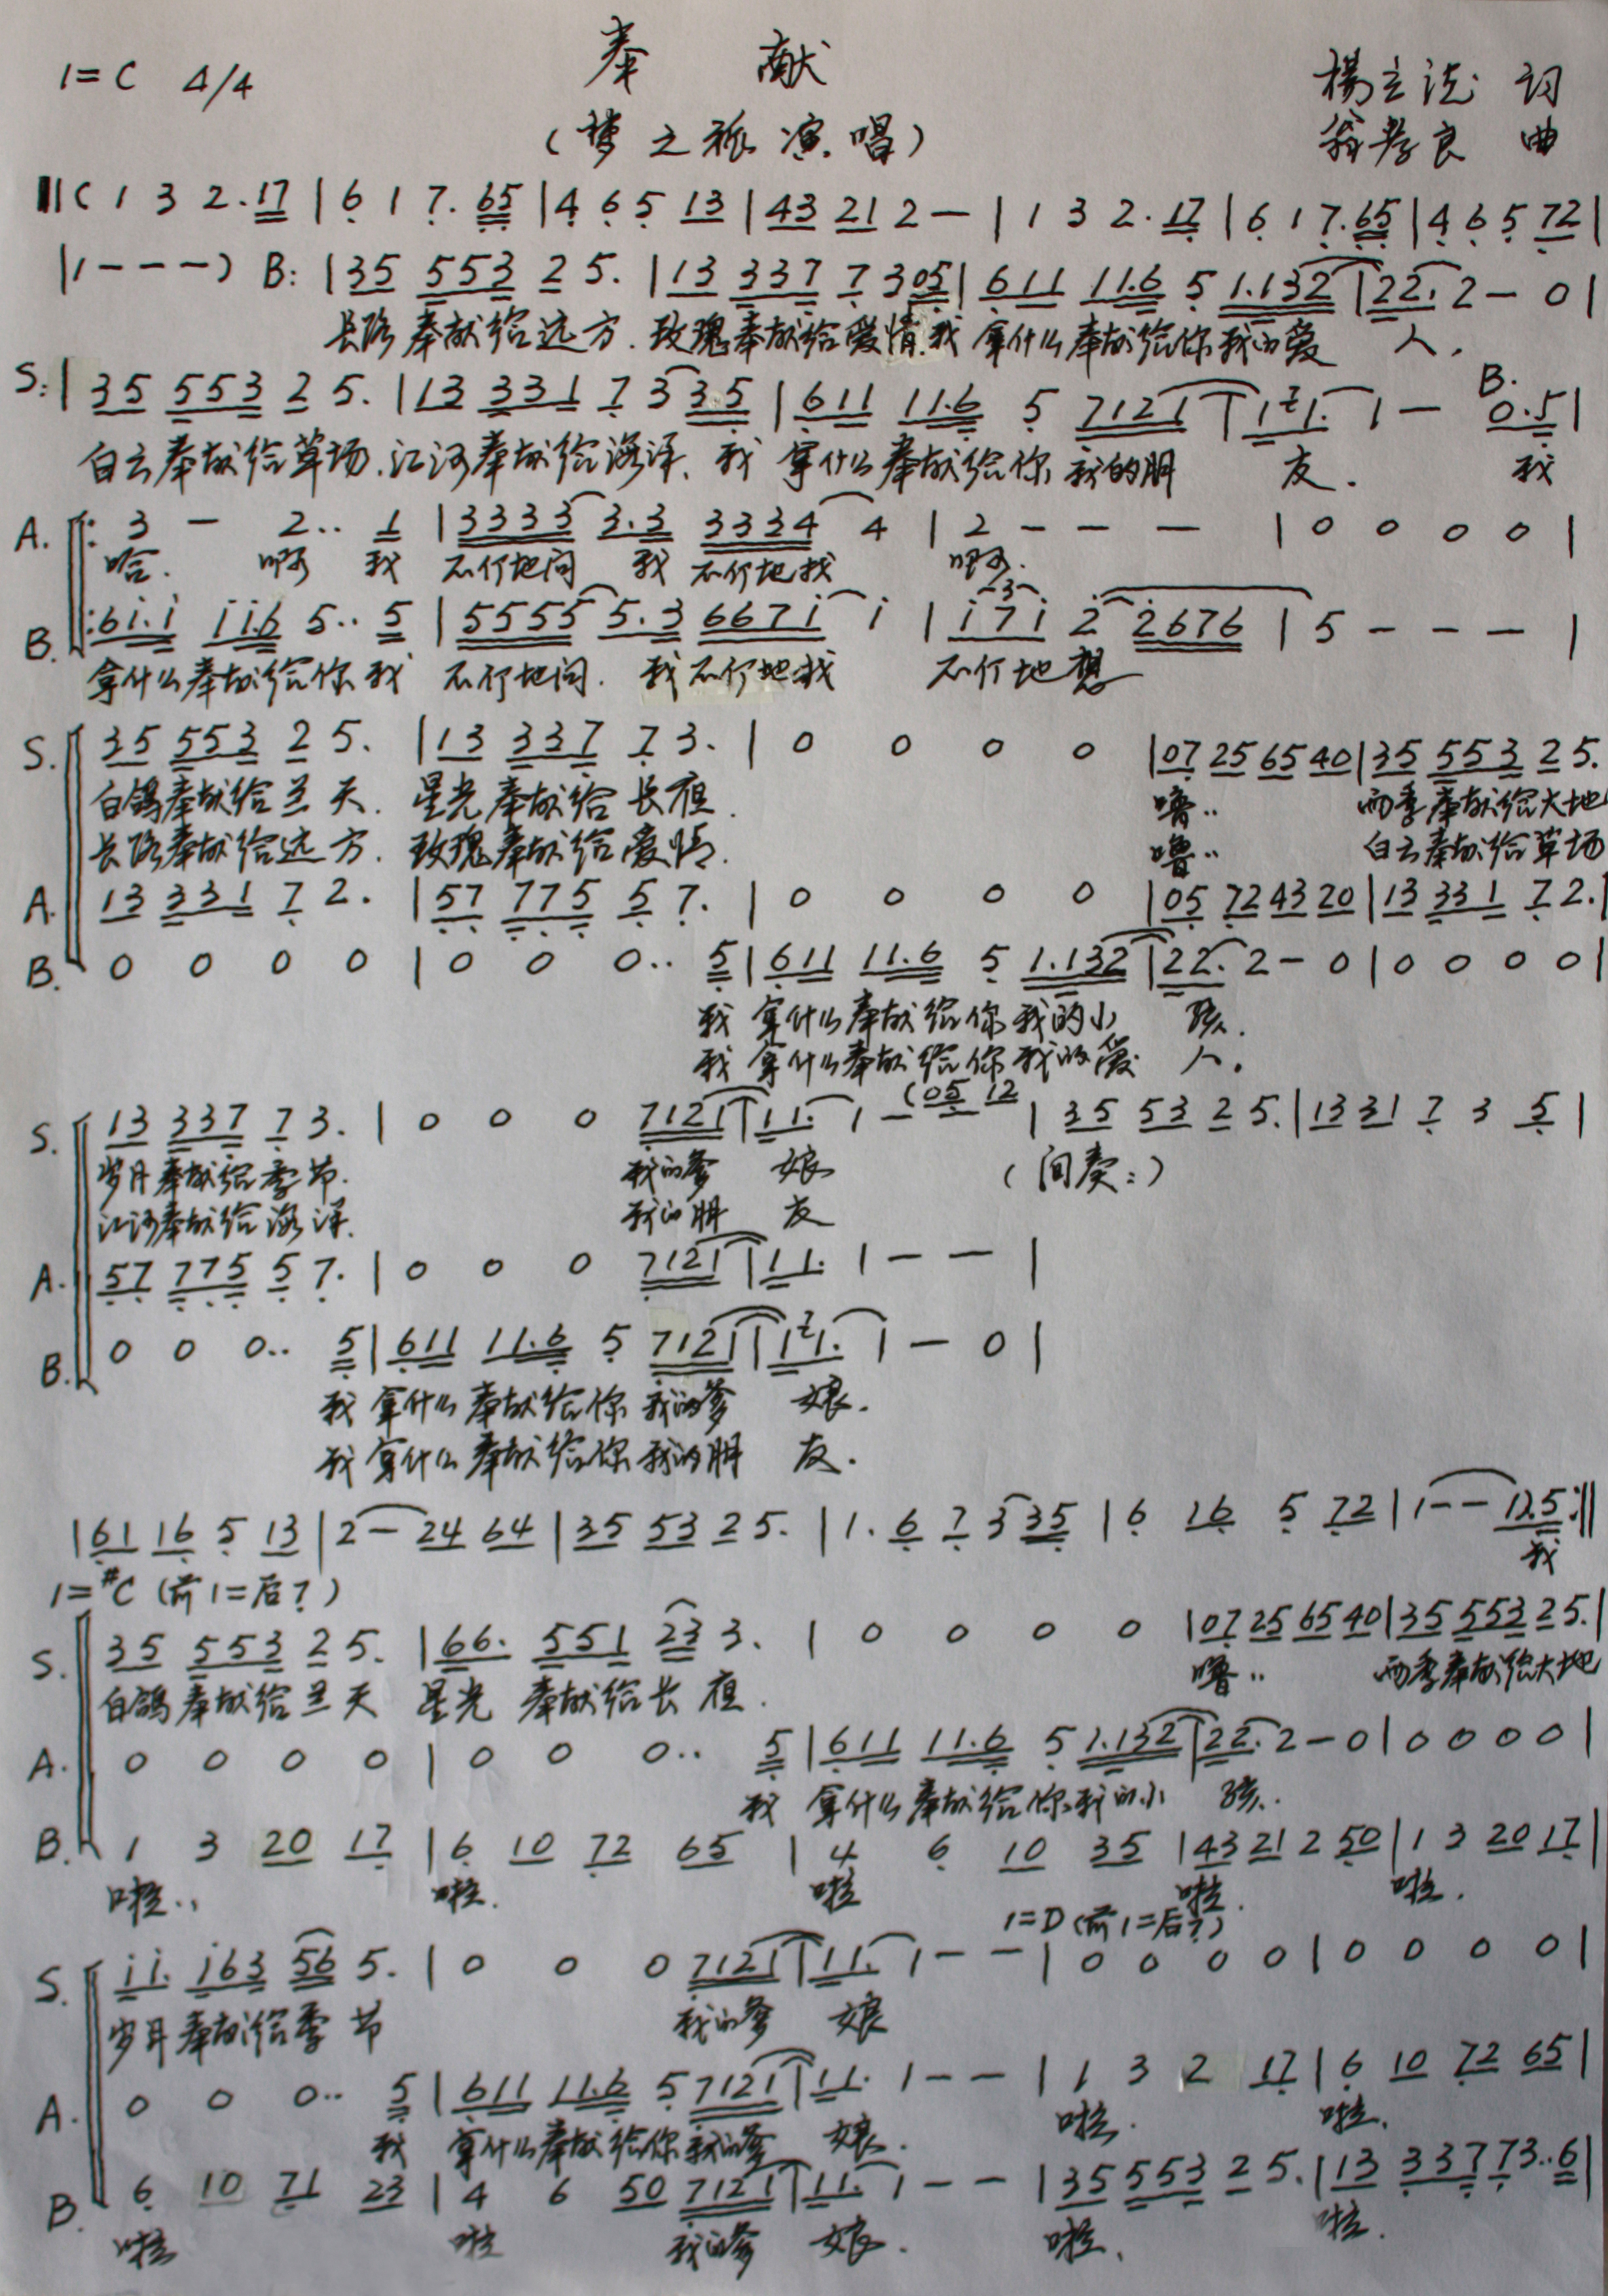 奉 献
1=C 4/4
(梦之旅演唱)
楊立德 词
翁孝良 曲
‖( 1 3 2. 17 | 6 1 7. 65 | 4 6 5 13 | 43 21 2 — | 1 3 2. 17 | 6 1 7. 65 | 4 6 5 72 |
| 1 - - - ) B: | 35 553 2 5. | 13 337 7 3 05 | 611 11.6 5 1.132 | 22. 2 — 0 |
长路奉献给远方. 玫瑰奉献给爱情. 我 拿什么奉献给你 我的爱 人.
S: | 35 553 2 5. | 13 331 7 3 3.5 | 611 11.6 5 7121 | 1 2 1. 1 — B. 0.5 |
白云奉献给草场. 江河奉献给海洋. 我 拿什么奉献给你 我的朋 友. 我
A. 3 — 2.. 1 | 3333 3.3 3334 4 | 2 — — — | 0 0 0 0 |
哈. 啊 我 不停地问 我 不停地找 啊.
B. 61.1 116 5.. 5 | 5555 5.3 6671 1 | 171 2 2676 | 5 — — — |
拿什么奉献给你 我 不停地问. 我不停地找 不停地想
S. 35 553 2 5. | 13 337 7 3. | 0 0 0 0 | 07 25 65 40 | 35 553 2 5.
白鸽奉献给兰天. 星光奉献给长夜. 噜.. 雨季奉献给大地
长路奉献给远方. 玫瑰奉献给爱情. 噜.. 白云奉献给草场
A. 13 331 7 2. | 57 775 5 7. | 0 0 0 0 | 05 72 43 20 | 13 331 7 2. |
B. 0 0 0 0 | 0 0 0.. 5 | 611 11.6 5 1.132 | 22. 2 — 0 | 0 0 0 0 |
我 拿什么奉献给你 我的小 孩.
我 拿什么奉献给你 我的爱 人.
S. 13 337 7 3. | 0 0 0 7121 | 11. 1 — (05 12 | 35 53 2 5. | 13 31 7 3 5 |
岁月奉献给季节. 我的爹 娘 (间奏:)
江河奉献给海洋. 我的朋 友
A. 57 775 5 7. | 0 0 0 7121 | 11. 1 — — |
B. 0 0 0.. 5 | 611 11.6 5 7121 | 1 2 1. 1 — 0 |
我 拿什么奉献给你 我的爹 娘.
我 拿什么奉献给你 我的朋 友.
| 61 16 5 13 | 2 — 24 64 | 35 53 2 5. | 1. 6 7 3 35 | 6 16 5 72 | 1 — — 12.5 :‖
我
1=#C (前1=后7)
S. 35 553 2 5. | 66. 551 23 3. | 0 0 0 0 | 07 25 65 40 | 35 553 2 5. |
白鸽奉献给兰天 星光 奉献给长夜. 噜.. 雨季奉献给大地
A. 0 0 0 0 | 0 0 0.. 5 | 611 11.6 5 1.132 | 22. 2 — 0 | 0 0 0 0 |
我 拿什么奉献给你 我的小 孩..
B. 1 3 20 17 | 6 10 72 65 | 4 6 10 35 | 43 21 2 50 | 1 3 20 17 |
啦.. 啦. 啦 啦. 啦.
1=D (前1=后7)
S. 11. 163 56 5. | 0 0 0 7121 | 11. 1 — — | 0 0 0 0 | 0 0 0 0 |
岁月奉献给季节 我的爹 娘
A. 0 0 0.. 5 | 611 11.6 5 7121 | 11. 1 — — | 1 3 2 17 | 6 10 72 65 |
我 拿什么奉献给你 我的爹 娘. 啦. 啦.
B. 6 10 71 23 | 4 6 50 7121 | 11. 1 — — | 35 553 2 5. | 13 337 7 3.. 6 |
啦 啦 我的爹 娘. 啦. 啦.